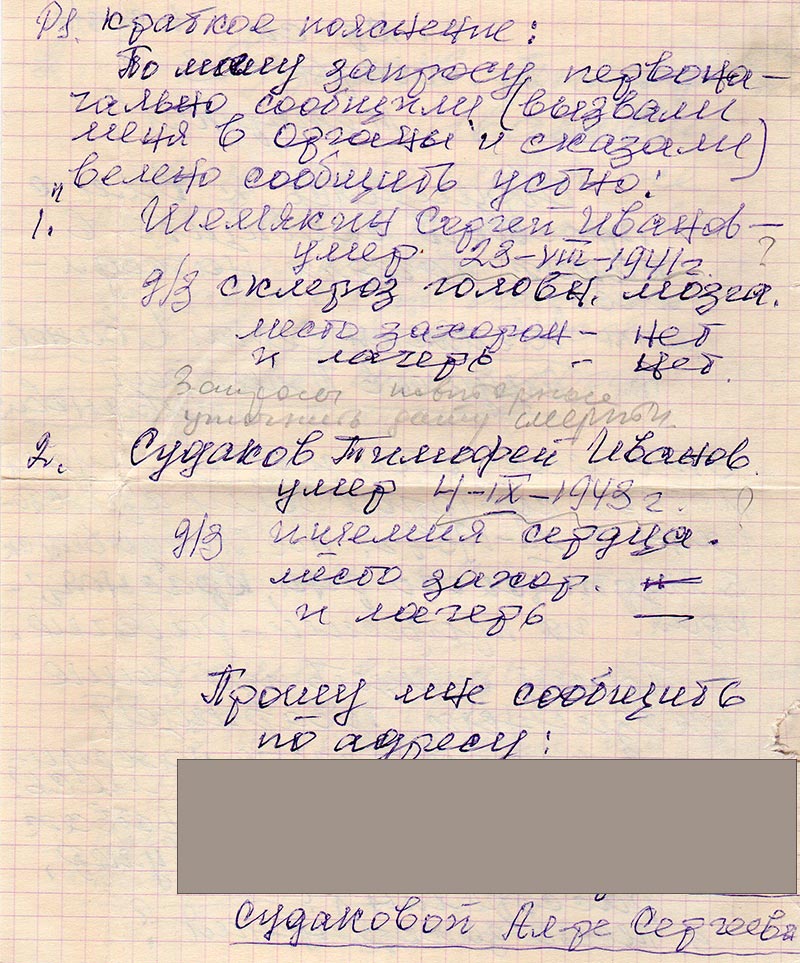 PS. Краткое пояснение:
По моему запросу первона-
чально сообщили (вызвали
меня в органы и сказали)
"велено сообщить устно:
1. Шемякин Сергей Иванов-
умер 23-VIII-1941г. ?
д/з склероз головн. мозга.
место захорон - нет
и лагерь - нет.
Запросы повторные
уточнить дату смерти.
2. Судаков Тимофей Иванов.
умер 4-IX-1943 г. ?
д/з ишемия сердца.
место захор. —
и лагерь —
Прошу мне сообщить
по адресу:
Судаковой Сергеевн